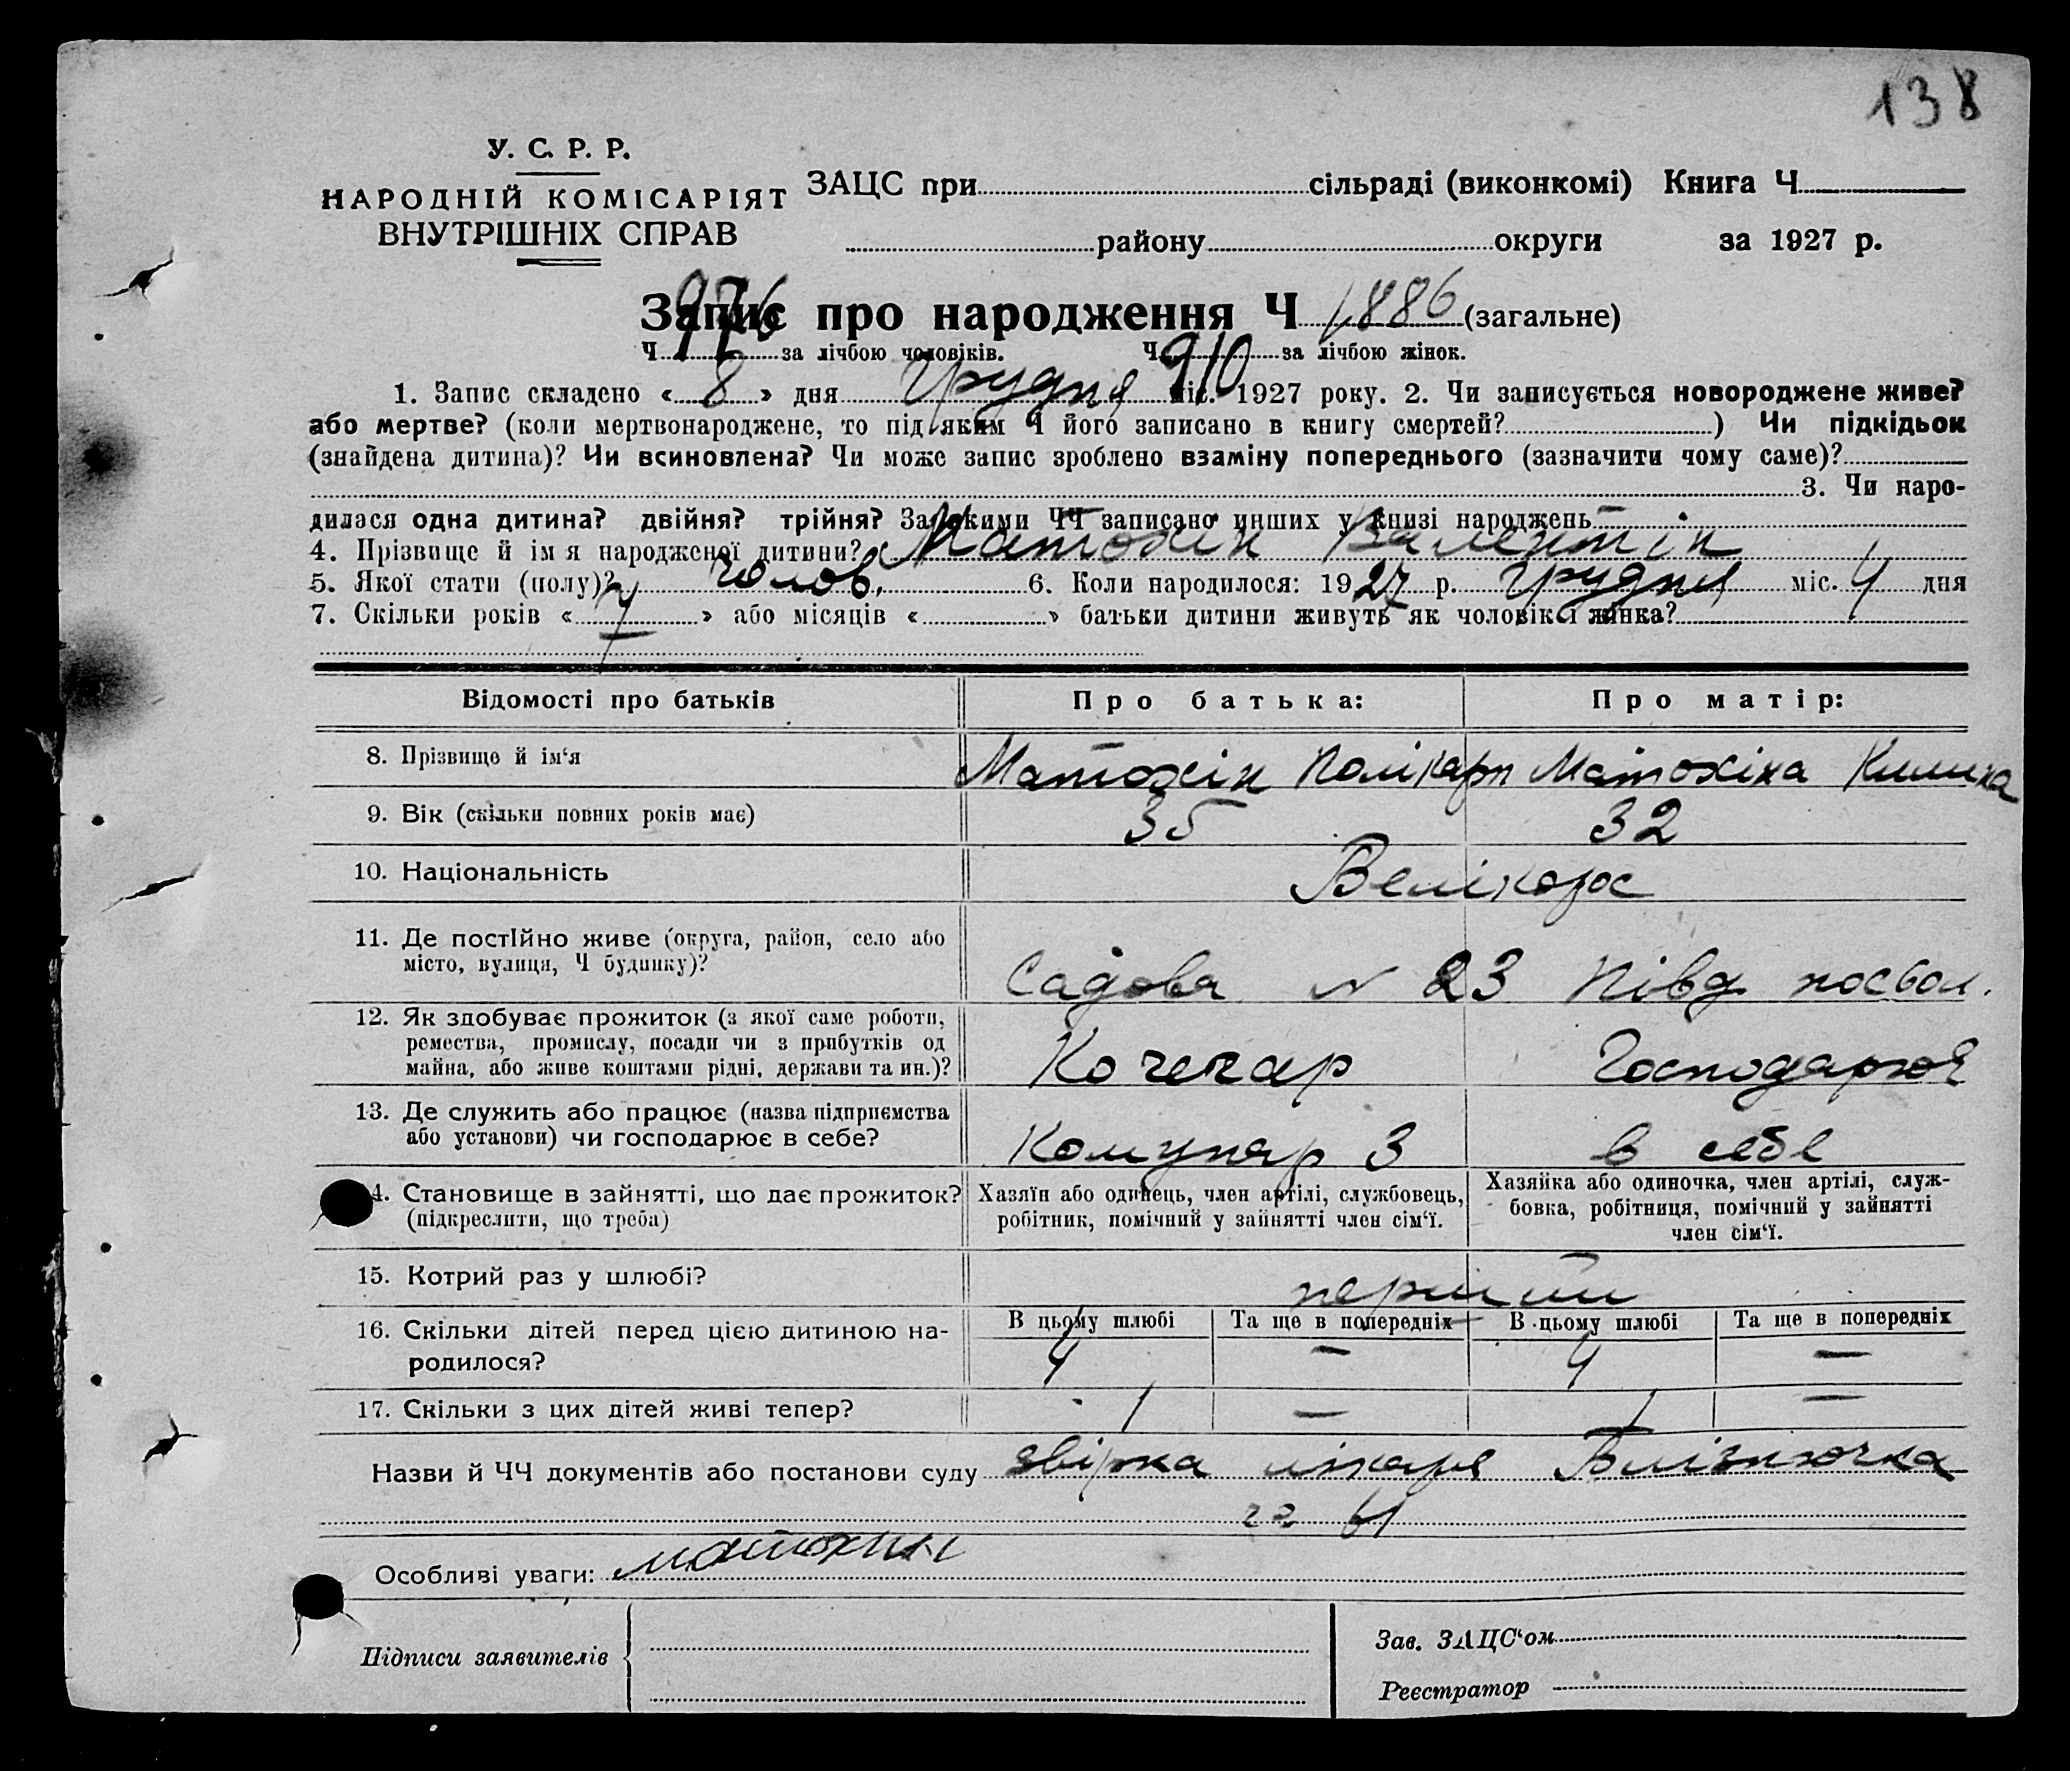 138
У. С. Р. Р.
НАРОДНІЙ КОМІСАРІЯТ
ВНУТРІШНІХ СПРАВ
ЗАЦС при сільраді (виконкомі) Книга Ч
району округи за 1927 р.
Запис про народження Ч 1886 (загальне)
Ч 976 за лічбою чоловіків. Ч 910 за лічбою жінок.
1. Запис складено « 8 » дня Грудня міс. 1927 року. 2. Чи записується новороджене живе?
або мертве? (коли мертвонароджене, то під яким Ч його записано в книгу смертей? ) Чи підкідьок
(знайдена дитина)? Чи всиновлена? Чи може запис зроблено взаміну попереднього (зазначити чому саме)?
3. Чи наро-
дилася одна дитина? двійня? трійня? За якими ЧЧ записано инших у книзі народжень
4. Прізвище й ім'я народженої дитини? Матохін Валентін
5. Якої стати (полу)? Чолов. 6. Коли народилося: 1927 р. Грудня міс. 4 дня
7. Скільки років « 7 » або місяців « » батьки дитини живуть як чоловік і жінка?
Відомості про батьків Про батька: Про матір:
8. Прізвище й ім‘я Матохін Полікарп Матохіна
9. Вік (скільки повних років має) 35 32
10. Національність Велікорос
11. Де постійно живе (округа, район, село або
місто, вулиця, Ч будинку)? Садова № 23 Півд
12. Як здобуває прожиток (з якої саме роботи,
ремества, промислу, посади чи з прибутків од
майна, або живе коштами рідні, держави та ин.)? Кочегар Господарює
13. Де служить або працює (назва підприємства
або установи) чи господарює в себе? Комунар 3 в себе
14. Становище в зайнятті, що дає прожиток?
(підкреслити, що треба)
Хазяїн або одинець, член артілі, службовець,
робітник, помічний у зайнятті член сім‘ї.
Хазяйка або одиночка, член артілі, служ-
бовка, робітниця, помічний у зайнятті
член сім‘ї.
15. Котрий раз у шлюбі? перший
16. Скільки дітей перед цією дитиною на-
родилося?
В цьому шлюбі Та ще в попередніх В цьому шлюбі Та ще в попередніх
4 — 4 —
17. Скільки з цих дітей живі тепер? 1 — 1 —
Назви й ЧЧ документів або постанови суду звірка лікаря Близнючка
за 61
Особливі уваги: матохин
Підписи заявителів
Зав. ЗАЦС‘ом
Реєстратор